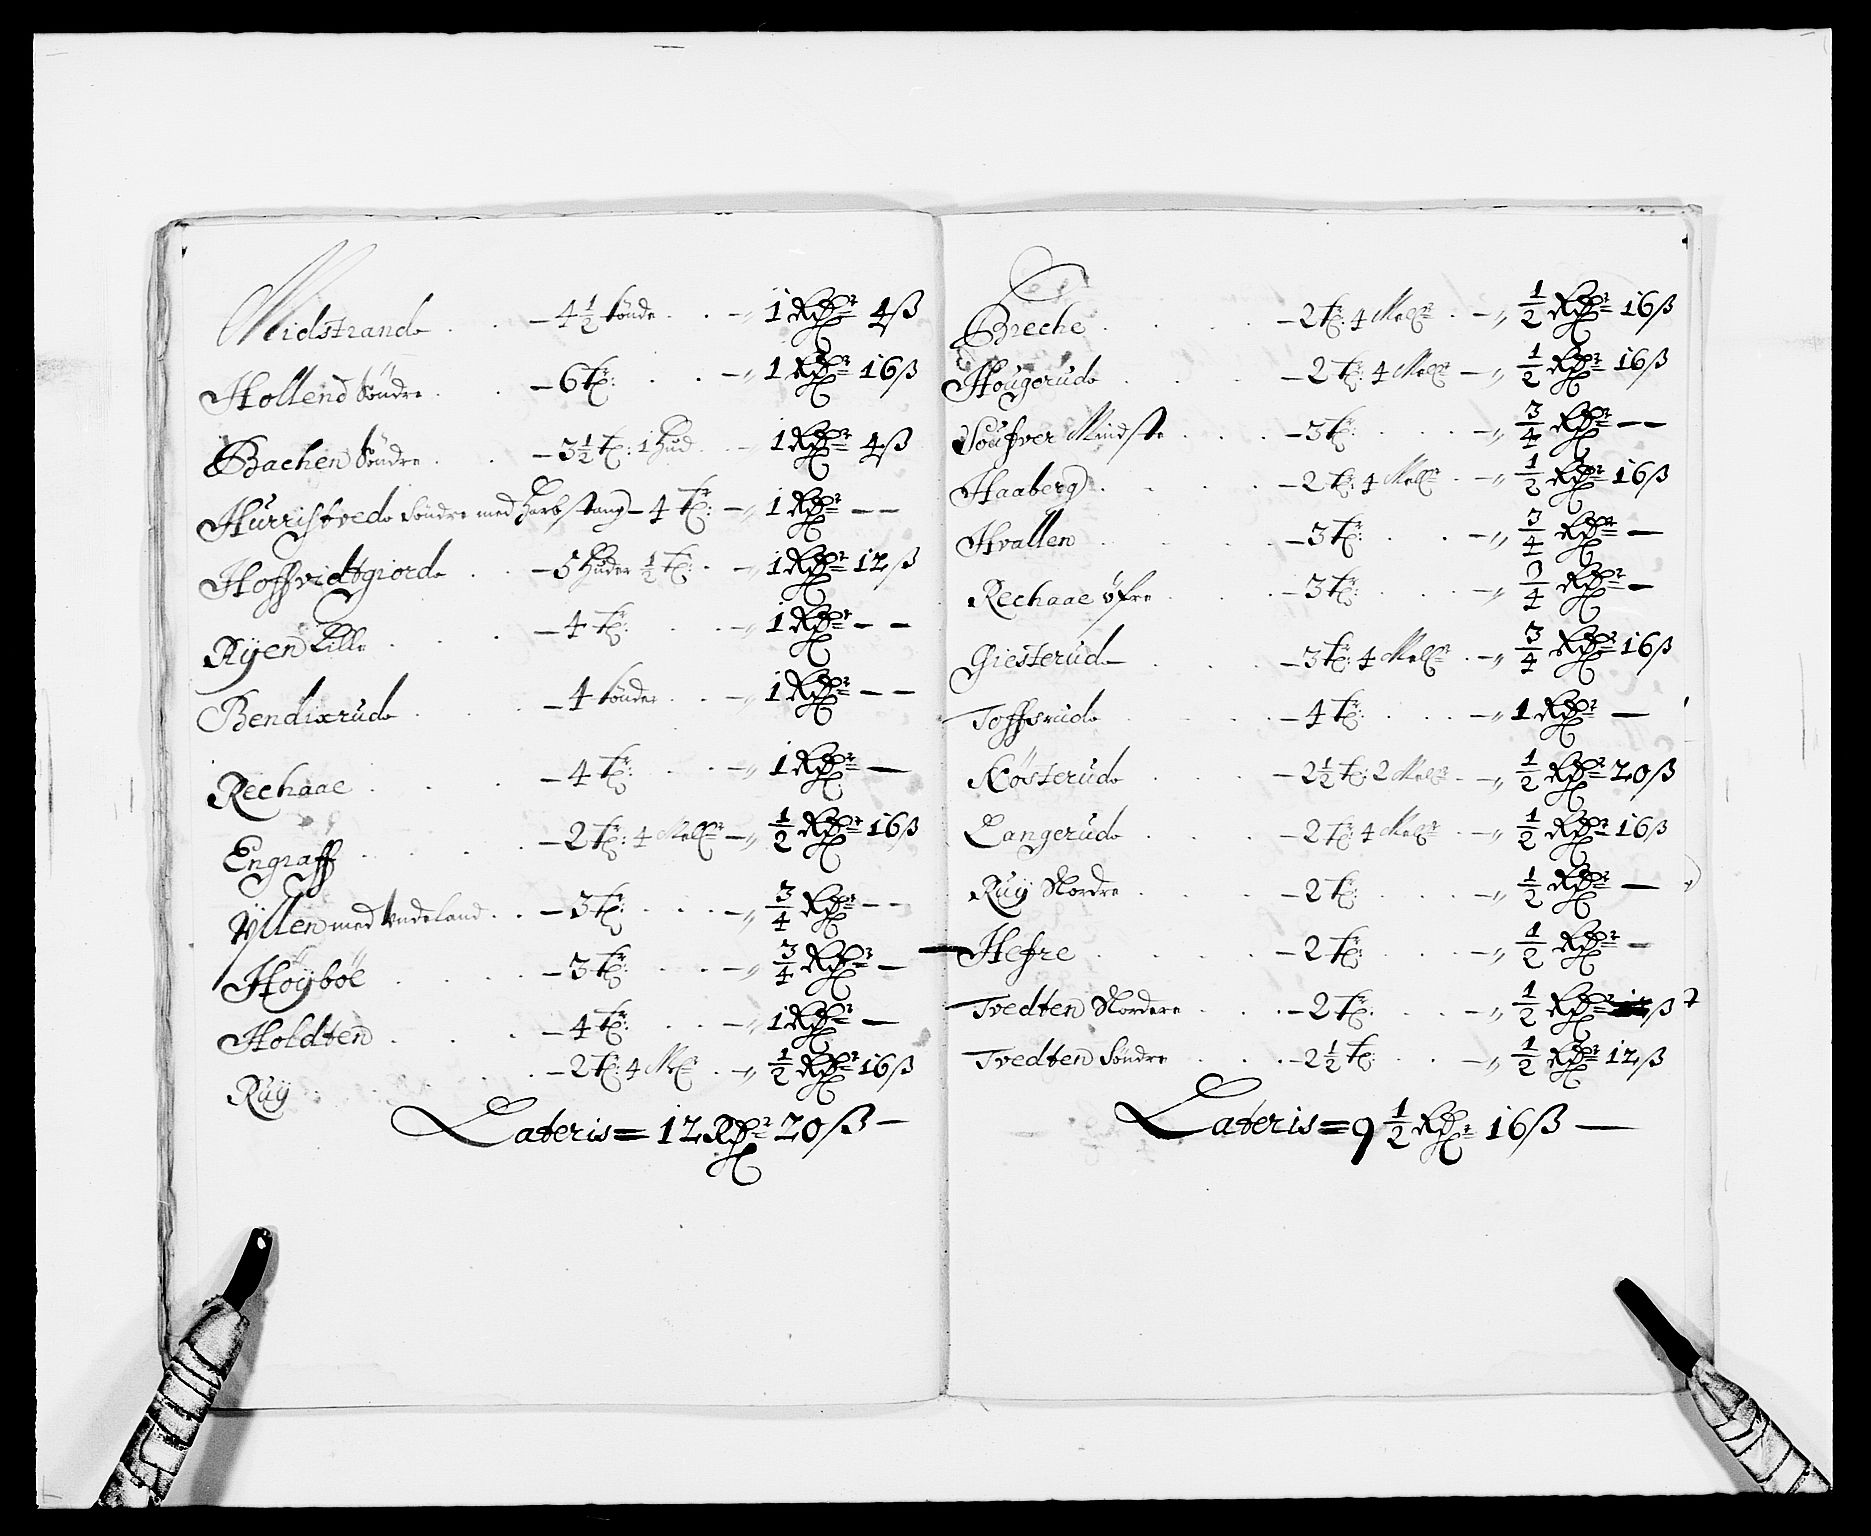 Midstrand . . – 4 1/2 tönde . . – „ 1 Rdr 4 ß
Hollend Söndre . . – 6 tr: . . – „ 1 Rdr 16 ß
Bachen Söndre . . – 3 1/2 tr: 1 Hud – „ 1 Rdr 4 ß
Hurristved Söndre med – 4 tr: – „ 1 Rdr – –
Hoffvidtgiord . . – 5 Huder 1/2 tr: . – „ 1 Rdr 12 ß
Ryen Lille . . . – 4 tr: . . – „ 1 Rdr – –
Bendixrud . . . – 4 tönder . . – „ 1 Rdr – –
Rechaae . . . – 4 tr: . . – „ 1 Rdr –
Engraff . . . . – 2 tr: 4 Melr – „ 1/2 Rdr 16 ß
Yllen med Undeland . . – 3 tr: . . . – „ 3/4 Rdr – –
Höyböe . . . – 3 tr: . . . – „ 3/4 Rdr –
Holdten . . . – 4 tr: . . – „ 1 Rdr –
Ruy . . . – 2 tr: 4 Mlr . – „ 1/2 Rdr 16 ß
Lateris = 12 Rdr 20 ß –
Breche . . . . – 2 tr: 4 Melr . – „ 1/2 Rdr 16 ß
Hougerud . . . . – 2 tr: 4 Melr – „ 1/2 Rdr 16 ß
Mindste . . . – 3 tr: . . . – „ 3/4 Rdr – –
Haaberg . . . . – 2 tr: 4 Melr . – „ 1/2 Rdr 16 ß
Hvallen . . . – 3 tr: . . – „ 3/4 Rdr –
Rechaae öfre . . . – 3 tr: . . . – „ 3/4 Rdr –
Giesterud . . . – 3 tr: 4 Melr . – „ 3/4 Rdr 16 ß
Toffsrud . . . . – 4 tr: . . . – „ 1 Rdr –
Kösterud . . . – 2 1/2 tr: 2 Melr . – „ 1/2 Rdr 20 ß
Langerud . . . – 2 tr: 4 Melr . – „ 1/2 Rdr 16 ß
Ruy Nordre . . . . – 2 tr: . . . – „ 1/2 Rdr –
Hefre . . . . – 2 tr: . . . – „ 1/2 Rdr –
Tvedten Nordere . . . – 2 tr: . . – „ 1/2 Rdr ß
Tvedten Söndre . . . – 2 1/2 tr: . . – „ 1/2 Rdr 12 ß
Lateris = 9 1/2 Rdr 16 ß –